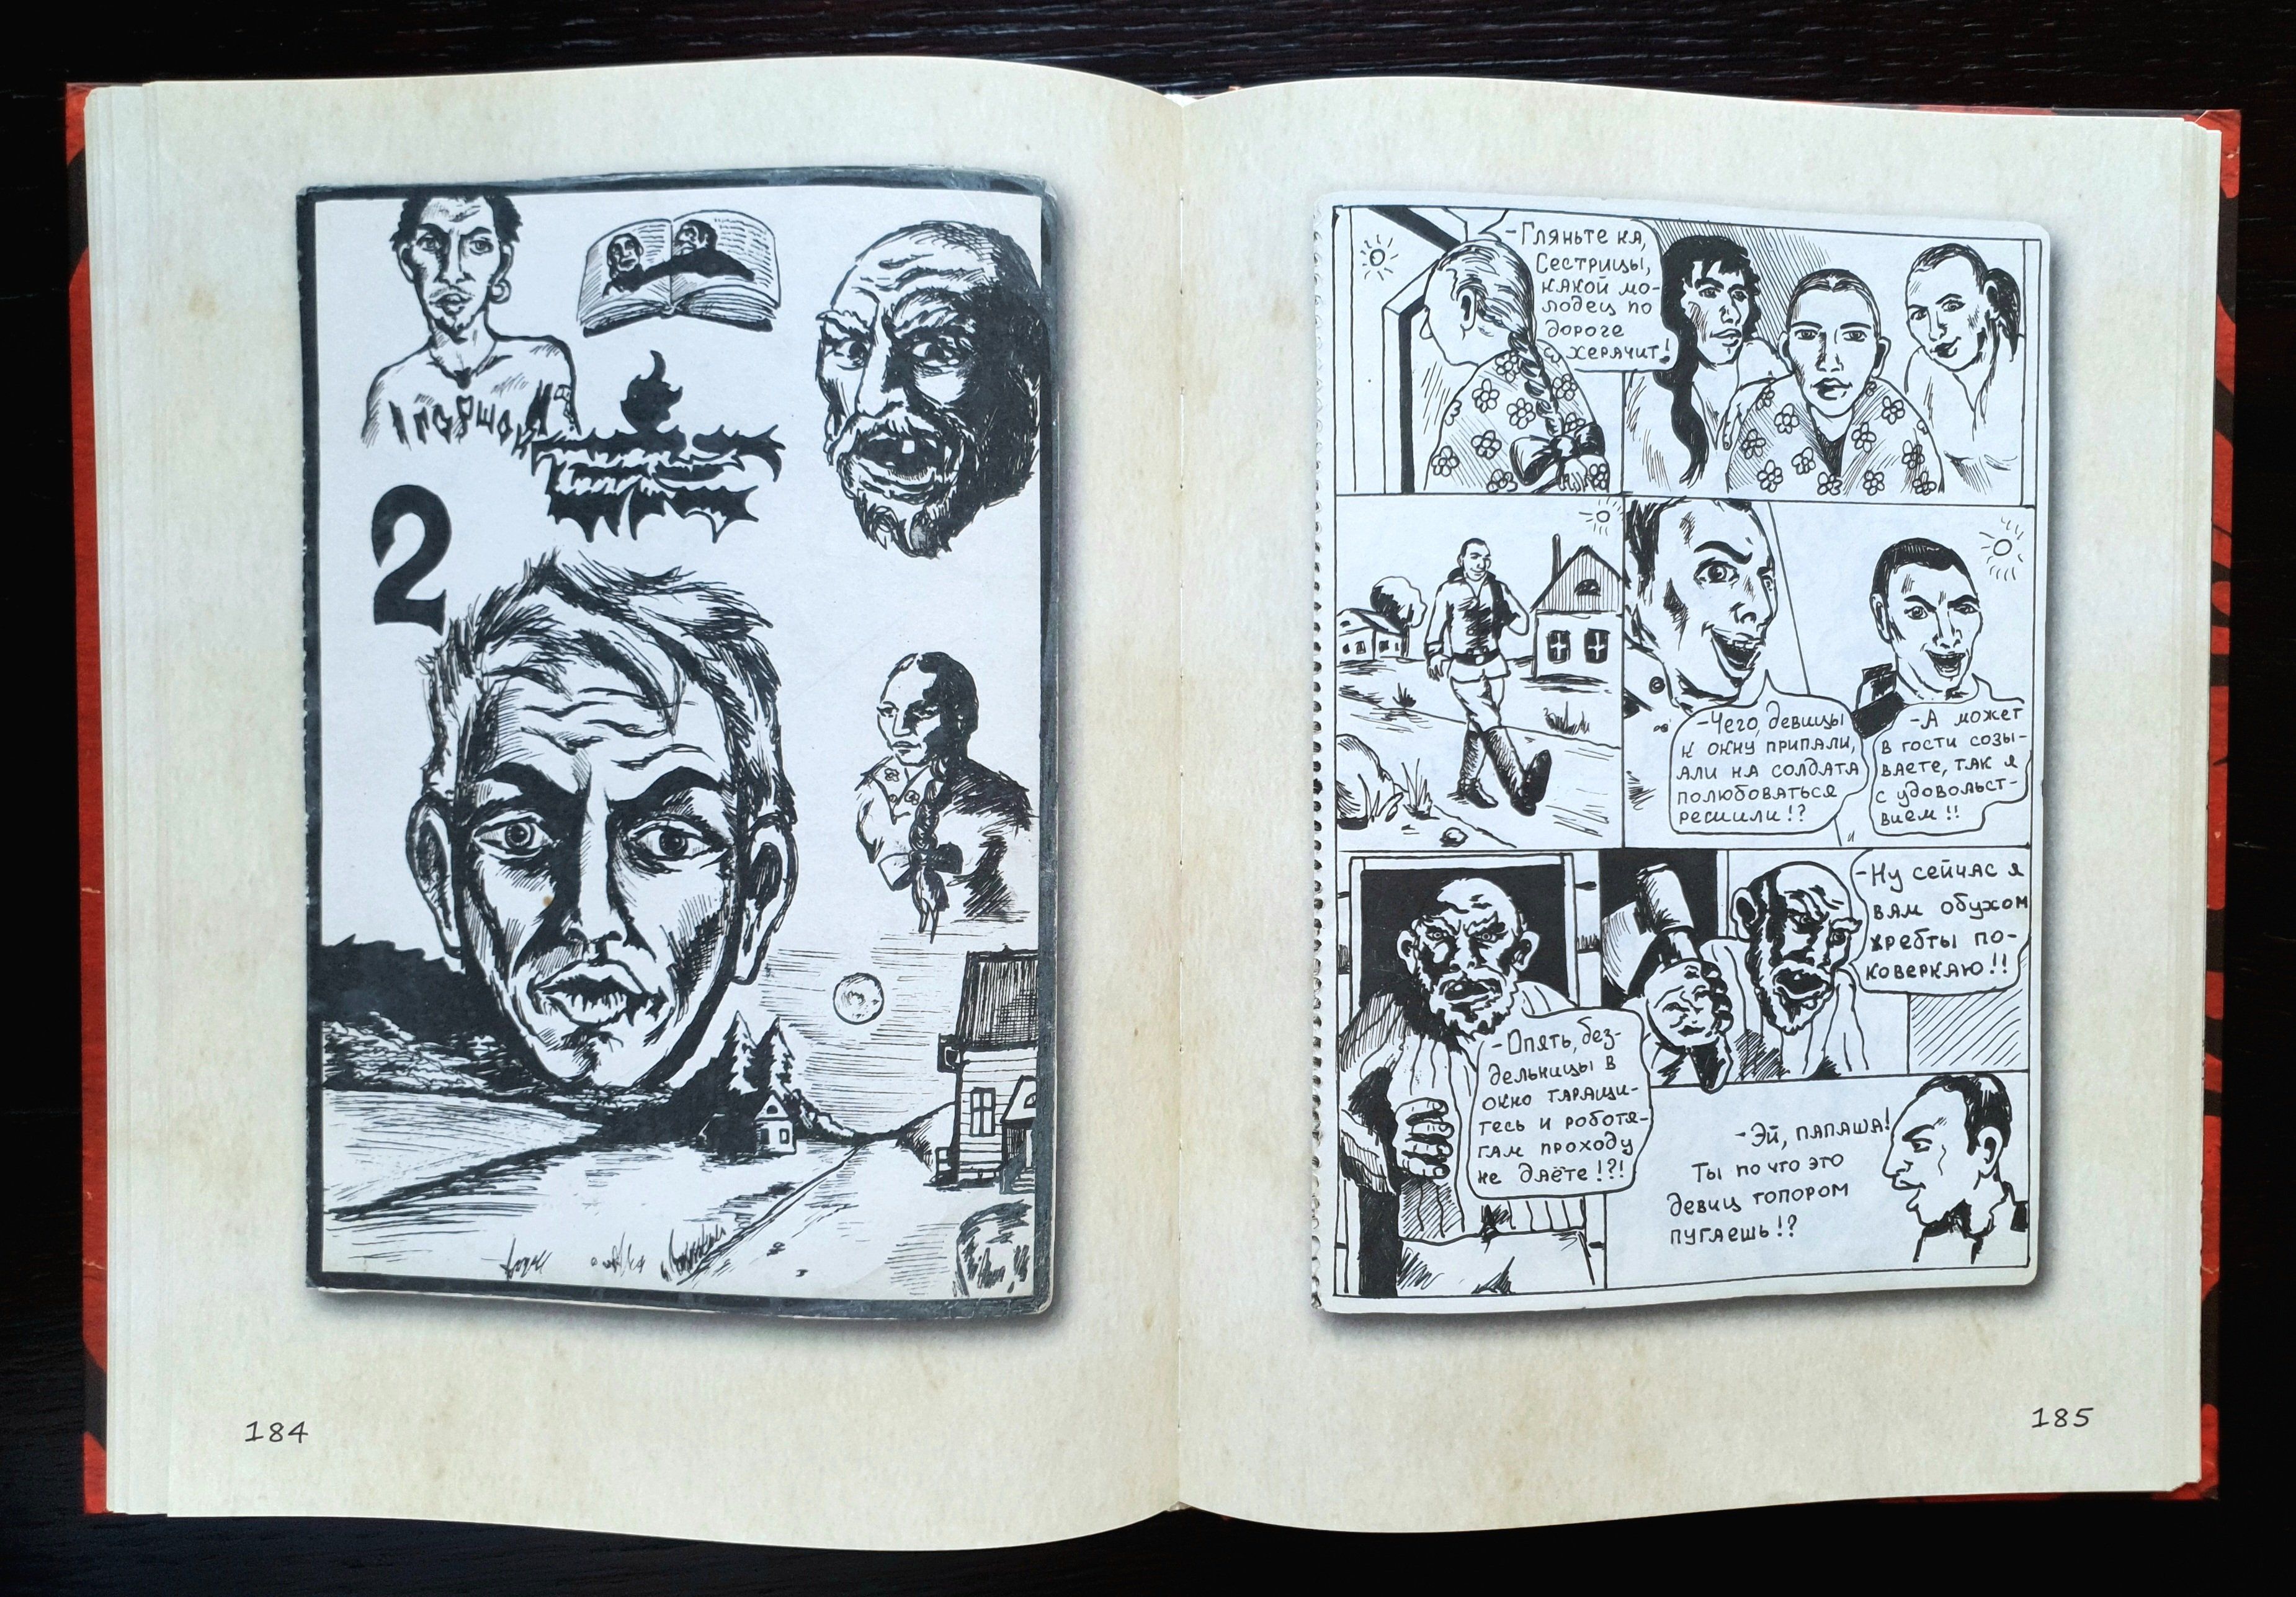 Горшок
2
184
-Гляньте ка,
Сестрицы,
какой мо-
лодец по
дороге
херячит!
-Чего, девицы
к окну припали,
али на солдата
полюбоваться
решили!?
-А может
в гости созы-
ваете, так я
с удовольст-
вием!!
-Опять, без-
дельницы в
окно таращи-
тесь и роботя-
гам проходу
не даёте!?!
-Ну сейчас я
вам обухом
хребты по-
коверкаю!!
-Эй, папаша!
Ты по что это
девиц топором
пугаешь!?
185